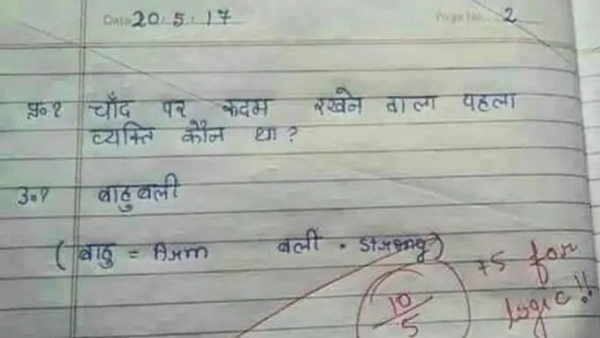 Date 20.5.17 Page No. 2
प्र०१ चाँद पर कदम रखने वाला पहला
व्यक्ति कौन था ?
उ०१ बाहुबली
( बाहु = Arm बली = Strong )
+5 for
logic!!
10/5